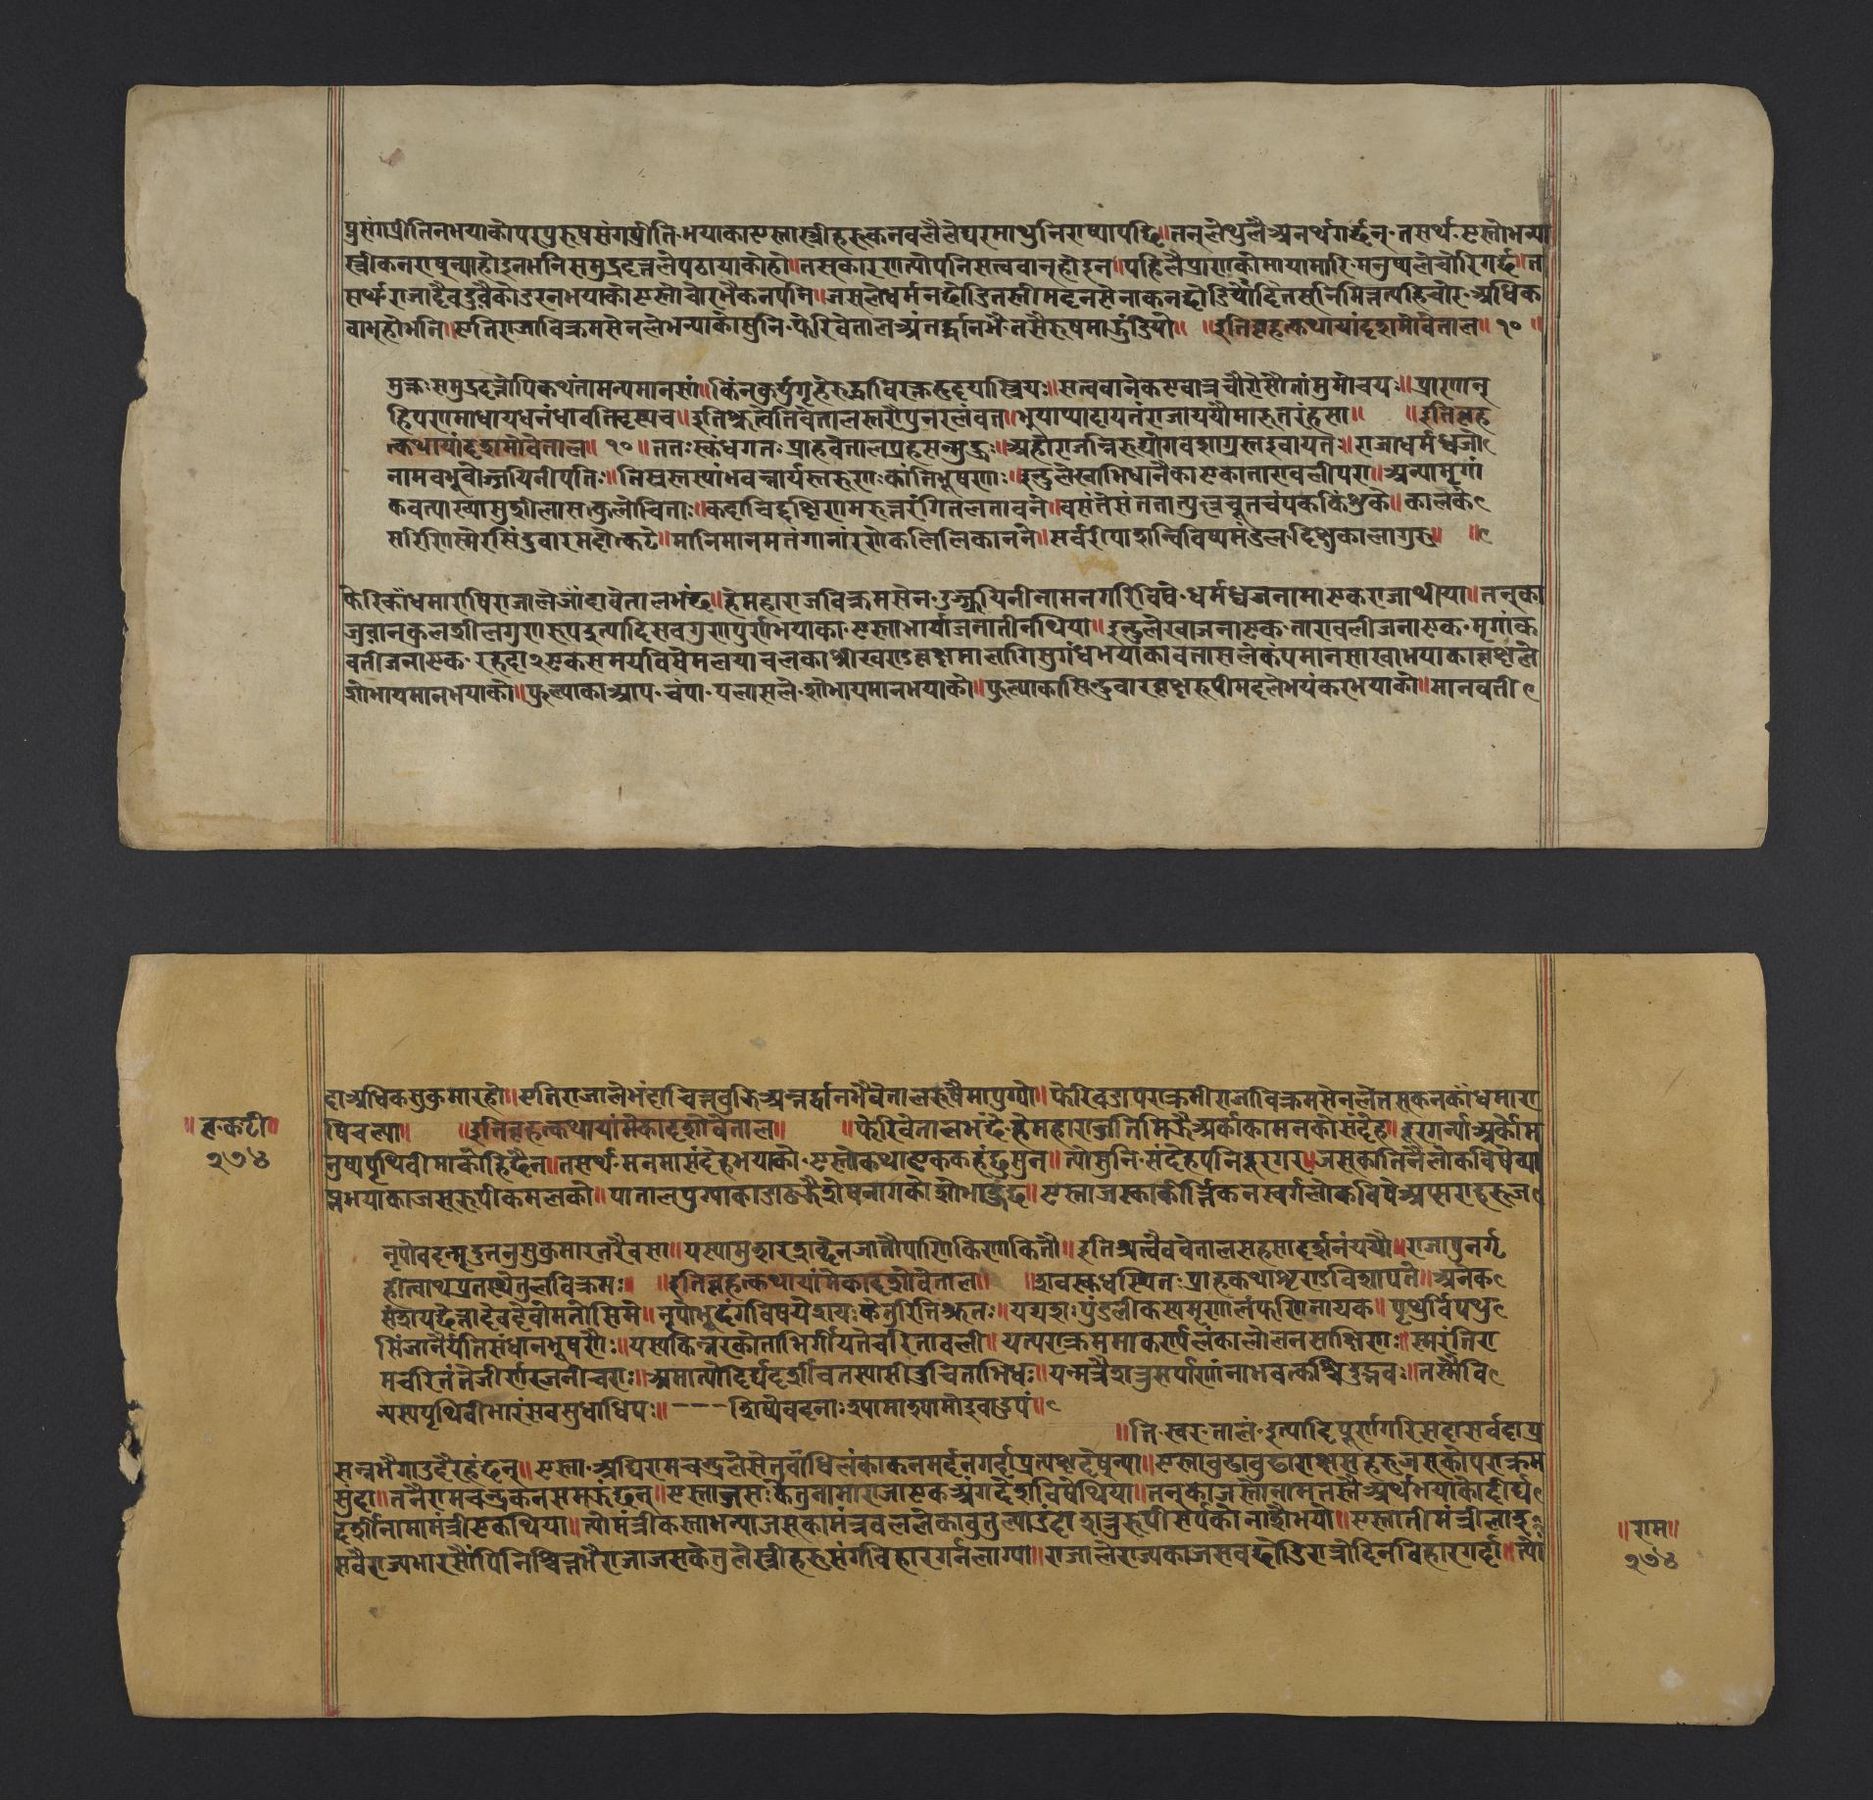 पुसंगप्रीतिनभयाको परपुरुषसंगप्रीति भयाका एस्ता स्त्रीहरूकन वलैले घरमा थुनिराष्यापछि॥ तनले थुलै अनर्थ गर्छन् तसर्थ एस्तो भन्या
स्त्रीकन राषुन्या होइन भनि समुद्रदत्तले पठायाको हो॥ तसकारण त्योपनि सत्ववान् होइन॥ पहिलै प्राणको माया मारि मनुष्यले चोरि गर्छ॥ त
सर्थ राजा दैव दुवैको डर नभयाको एस्तो चोर भैकन पनि॥ जसले धर्म नछोडि तस्ती मदनसेनाकन छोडिदियो तसनिमित्त त्यहि चोर अधिक
वाभु हो भनि॥ एति राजा विक्रमसेनले भन्याको सुनि फेरि वेताल अंतर्द्धान भै तसै रूषमा झुंडियो॥ ॥इति बृहत्कथायां दशमो वेताल॥ १० ॥
मुक्तः समुद्रदत्तोपि कथं तामन्यमानसां॥ किं न कुर्युर्गृहे रुद्धा विरक्तहृदया स्त्रियः॥ सत्ववानेक एवात्र चौरोसौ तां मुमोच यः॥ प्राणान्
हि पणमाधाय धनं धावति दस्यव॥ इति श्रुत्वेति वेतालस्तरौ पुनरलंवत॥ भुयाप्यादाय तं राजा ययौ मारुतरंहसा॥ ॥इति बृह
त्कथायां दशमो वेताल॥ १० ॥ ततः स्कंधगतः प्राह वेताल प्रहसन्मुहुः॥ अहो राजन्निरुद्योगवशग्रस्त इवायतः॥ राजा धर्मध्वजो
नाम वभूवोज्जयिनीपतिः॥ तिस्रस्तस्याभवन्भार्यस्तरुणः कांतिभूषणाः॥ इन्दुलेखाभिधानैका एका तारावली परा॥ अन्या मृगां
कवत्याख्या सुशीलास कुलोचिताः॥ कदाचिद्दक्षिणामरुत्तरंगितलतावने॥ वसंते संततोत्फुल्लचूतचंपककिंशुके॥ कालके
सरिणि स्मेरसिंदुवारमदोत्कटे॥ मानिमानमतंगानां रणे कलिलिकानने॥ सर्वरीपादान्विविष्यमंडल दिक्षु कालागुरु॥ ॥
फेरि काँधमा राषि राजाले जांदा वेताल भंछ॥ हे महाराज विक्रमसेन उज्जयिनी नाम नगरि विषे धर्मध्वज नामा एक राजा थीया॥ तनका
जुवान कुल शील गुण रूप इत्यादि सव गुण पुर्ण भयाका एस्ता भार्या जना तीन थिया॥ इन्दुलेखा जना एक तारावली जना एक मृगांक
वती जना एक रहदा२ एक समय विषे मलयाचलका श्रीखण्ड वृक्षमा लागि सुगंध भयाका वतासले कंपमान साखा भयाका वृक्षले
शोभायमान भयाको॥ फुल्याका आप चंपा पलासले शोभायमान भयाको॥ फुल्याका सिन्दुवार वृक्षरूपी मदले भयंकर भयाको॥ मानवती
॥बृ·कटी॥
२७४
दा अधिक सुकुमार हो॥ एति राजाले भंदा चित्त वुझि अन्तर्द्धान भै वेताल रुषैमा पुग्यो॥ फेरि वडा पराक्रमी राजा विक्रमसेनले तसकन काँधमा रा
षि चल्या॥ ॥इति बृहत्कथायांमेकादशो वेताल॥ ॥फेरि वेताल भंछ हे महाराज तिमि झै अर्काका मनको संदेह॥ हरण गर्न्या अर्को म
नुष्य पृथिवीमा कोहि छैन॥ तसर्थ मनमा संदेह भयाको एस्तो कथा एक कहंछु सुन॥ त्यो सुनि संदेह पनि हरण गर॥ जसका तिनै लोक विषे व्या
प्त भयाका जसरूपी कमलको॥ पाताल पुग्याका डाठ झै शेषनागको शोभा हुंछ॥ एस्ता जस्का कीर्त्तिकन स्वर्गलोक विषे अप्सराहरू ज
नृपोवदन्मृदुतनुसुकुमारतरैव सा॥ यस्यामुशरशब्देन जातौ पाणि किणांकितौ॥ इति श्रुत्वैव वेताल सहसादर्शनं ययौ॥ राजा पुनर्गृ
हीत्वाथ प्रतस्थेतुलविक्रमः॥ ॥इति बृहत्कथायांमेकादशो वेताल॥ ॥शवस्कंधस्थितः प्राह कथा श्रृणु विशापते॥ अनेक
संशयछेत्ता देवदेवो मतोसि मे॥ नृपोभूदंगविषये शयः केतुरिति श्रुतः॥ यद्यशः पुंडरीकस्य मृणालं फणिनायक॥ पृथुर्विपथु
सिंजानैर्यतिसंधानभूषणैः॥ यस्य किन्नरकांताभिर्गीयते चरितावली॥ यत्पराक्रममाकर्ण्य लंकालोलनसाक्षिणः॥ स्मरंति रा
मचरितं ते जीर्णा रजनीचराः॥ अमात्यो दीर्घदर्शीव तस्यासीदुचिताभिधः॥ यन्मन्त्रै शत्रुसर्पाणां नाभवत्कश्चिदुद्भवः॥ तस्मै वि
न्यस्य पृथिवीभारं स वसुधाधिपः॥ --- शिष्यैवदनाः
॥ति स्वर तालं इत्यादि पूर्ण गरि सदा सर्वदा प्र
सन्न भै गाउदै रहंछन्॥ एस्ता अघि रामचन्द्रले सेतु वाँधि लंकाकन मर्दन गर्दा प्रत्यक्ष देषुन्या॥ एस्ता वुढा वुढा राक्षसहरु जसको पराक्रम
सुंदा॥ तनै रामचन्द्रकन समझंछन्॥ एस्ता जसःकेतु नामा राजा एक अंगदेश विषे थिया॥ तनको जस्तो नाम तस्तै अर्थ भयाको दीर्घ
दर्शी नामा मंत्री एक थिया॥ त्यो मंत्री कस्ता भन्या जसका मंत्र वलले शत्रुरूपी सर्पको नाशै भयो॥ एस्ता ती मंत्रीलाइ
सवै राज्यभार सौंपि निश्चित भै राजा जसकेतुले स्त्रीहरु संग विहार गर्न लाग्या॥ राजाले राज्यकाज सव छोडि रात्रीदिन विहार गर्दा॥ त्यो
॥राम॥
२७४